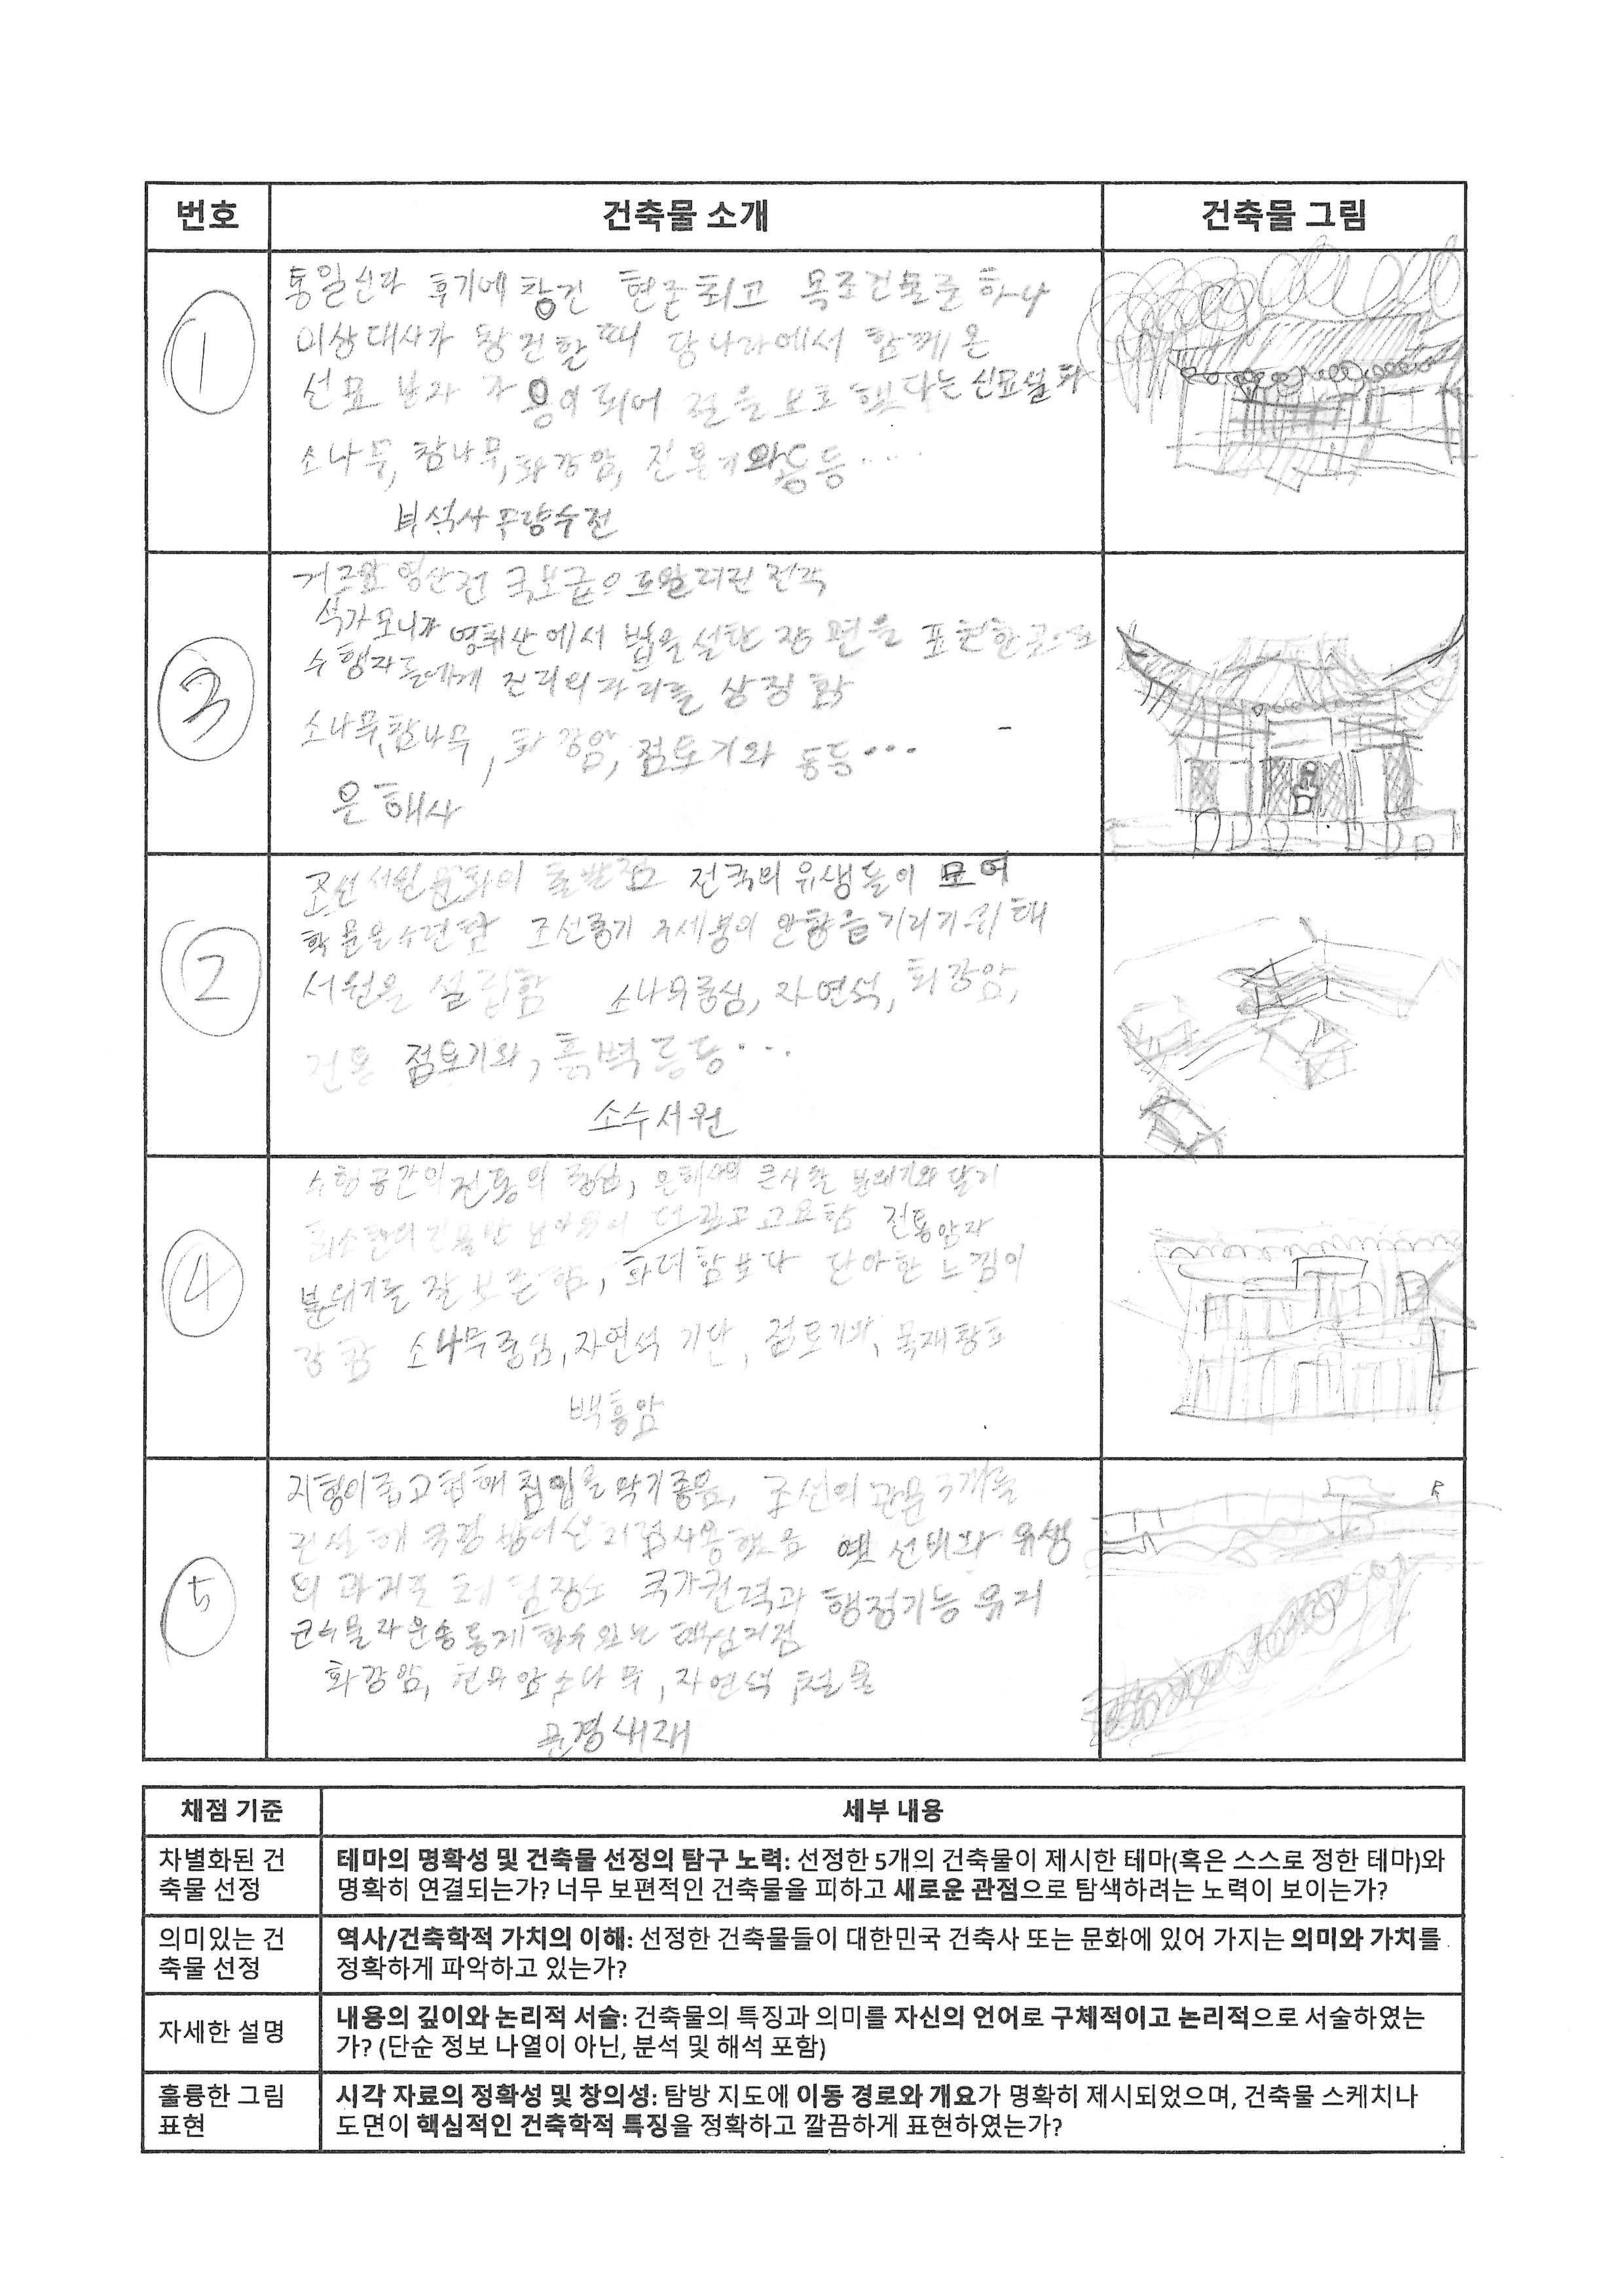 번호 건축물 소개 건축물 그림
①
통일신라 후기에 창건 현존 최고 목조건물중 하나
의상대사가 창건할 때 당나라에서 함께 온
선묘 낭자 가 용이 되어 절을 보호 했다는 선묘설화
소나무, 참나무, 화강암, 전통기와 등등....
부석사 무량수전
③
거조암 영산전 국보급으로 알려진 전각
석가모니가 영취산에서 법을 설한 장면을 표현한 곳으로
수행자들에게 진리의 자리를 상징함
소나무, 참나무, 화강암, 점토기와 등등...
은해사
②
조선 서원 문화의 출발점 전국의 유생들이 모여
학문을 수련함 조선중기 주세붕이 안향을 기리기 위해
서원을 설립함 소나무중심, 자연석, 화강암,
전통 점토기와, 흙벽 등등...
소수서원
④
수행공간의 전통의 중심, 은해사의 큰사찰 분위기와 달리
최소한의 건물만 더 깊고 고요함 전통암자
분위기를 잘 보존함, 화려함보다 단아한 느낌이
강함 소나무중심, 자연석 기단, 점토기와, 목재창호
백흥암
⑤
지형이 좁고 험해 침입을 막기좋음, 조선의 관문 3개를
건설해 국경 방어선처럼사용했음 옛 선비와 유생
의 과거 장소 국가권력과 행정기능 유지
군사물자운송통제할수있는 핵심지점
화강암, 현무암, 소나무, 자연석, 철물
문경새재
채점 기준 세부 내용
차별화된 건
축물 선정
테마의 명확성 및 건축물 선정의 탐구 노력: 선정한 5개의 건축물이 제시한 테마(혹은 스스로 정한 테마)와
명확히 연결되는가? 너무 보편적인 건축물을 피하고 새로운 관점으로 탐색하려는 노력이 보이는가?
의미있는 건
축물 선정
역사/건축학적 가치의 이해: 선정한 건축물들이 대한민국 건축사 또는 문화에 있어 가지는 의미와 가치를
정확하게 파악하고 있는가?
자세한 설명
내용의 깊이와 논리적 서술: 건축물의 특징과 의미를 자신의 언어로 구체적이고 논리적으로 서술하였는
가? (단순 정보 나열이 아닌, 분석 및 해석 포함)
훌륭한 그림
표현
시각 자료의 정확성 및 창의성: 탐방 지도에 이동 경로와 개요가 명확히 제시되었으며, 건축물 스케치나
도면이 핵심적인 건축학적 특징을 정확하고 깔끔하게 표현하였는가?